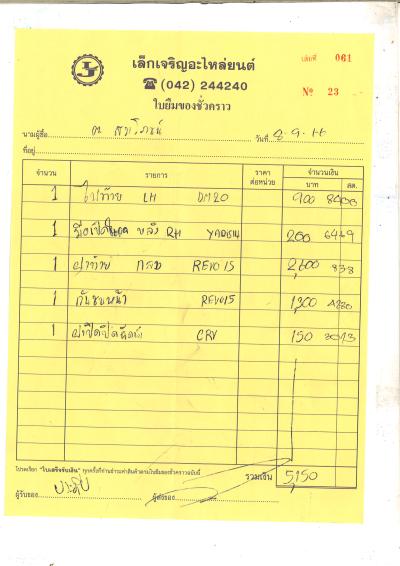 เล็กเจริญอะไหล่ยนต์
เล่มที่ 061
☎ (042) 244240
ใบยืมของชั่วคราว
№ 23
นามผู้ซื้อ
วันที่ 8-9-16
ที่อยู่
จำนวน รายการ ราคาต่อหน่วย จำนวนเงิน
บาท สต.
1 ไฟท้าย LH 900
1 มือเปิด หลัง RH 200
1 ฝาท้าย REVO 15 2,600 838
1 กันชนหน้า REVO 15 1,300
1 CRV 150
โปรดเรียก "ใบเสร็จรับเงิน" ทุกครั้งที่ท่านชำระค่าสินค้าตามใบยืมของชั่วคราวฉบับนี้
รวมเงิน 5,150
ผู้รับของ ผู้ส่งของ